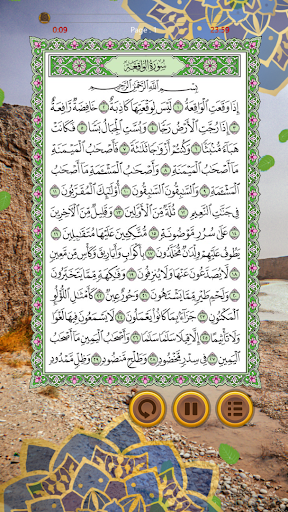 0:09
سُورَةُ الوَاقِعَةِ
بِسْمِ اللَّهِ الرَّحْمَٰنِ الرَّحِيمِ
إِذَا وَقَعَتِ الْوَاقِعَةُ ١ لَيْسَ لِوَقْعَتِهَا كَاذِبَةٌ ٢ خَافِضَةٌ رَّافِعَةٌ
٣ إِذَا رُجَّتِ الْأَرْضُ رَجًّا ٤ وَبُسَّتِ الْجِبَالُ بَسًّا ٥ فَكَانَتْ
هَبَاءً مُّنبَثًّا ٦ وَكُنتُمْ أَزْوَاجًا ثَلَاثَةً ٧ فَأَصْحَابُ الْمَيْمَنَةِ
مَا أَصْحَابُ الْمَيْمَنَةِ ٨ وَأَصْحَابُ الْمَشْئَمَةِ مَا أَصْحَابُ
الْمَشْئَمَةِ ٩ وَالسَّابِقُونَ السَّابِقُونَ ١٠ أُولَٰئِكَ الْمُقَرَّبُونَ ١١
فِي جَنَّاتِ النَّعِيمِ ١٢ ثُلَّةٌ مِّنَ الْأَوَّلِينَ ١٣ وَقَلِيلٌ مِّنَ الْآخِرِينَ
١٤ عَلَىٰ سُرُرٍ مَّوْضُونَةٍ ١٥ مُّتَّكِئِينَ عَلَيْهَا مُتَقَابِلِينَ ١٦
يَطُوفُ عَلَيْهِمْ وِلْدَانٌ مُّخَلَّدُونَ ١٧ بِأَكْوَابٍ وَأَبَارِيقَ وَكَأْسٍ مِّن مَّعِينٍ
١٨ لَّا يُصَدَّعُونَ عَنْهَا وَلَا يُنزِفُونَ ١٩ وَفَاكِهَةٍ مِّمَّا يَتَخَيَّرُونَ
٢٠ وَلَحْمِ طَيْرٍ مِّمَّا يَشْتَهُونَ ٢١ وَحُورٌ عِينٌ ٢٢ كَأَمْثَالِ اللُّؤْلُؤِ
الْمَكْنُونِ ٢٣ جَزَاءً بِمَا كَانُوا يَعْمَلُونَ ٢٤ لَا يَسْمَعُونَ فِيهَا لَغْوًا
وَلَا تَأْثِيمًا ٢٥ إِلَّا قِيلًا سَلَامًا سَلَامًا ٢٦ وَأَصْحَابُ الْيَمِينِ مَا أَصْحَابُ
الْيَمِينِ ٢٧ فِي سِدْرٍ مَّخْضُودٍ ٢٨ وَطَلْحٍ مَّنضُودٍ ٢٩ وَظِلٍّ مَّمْدُودٍ